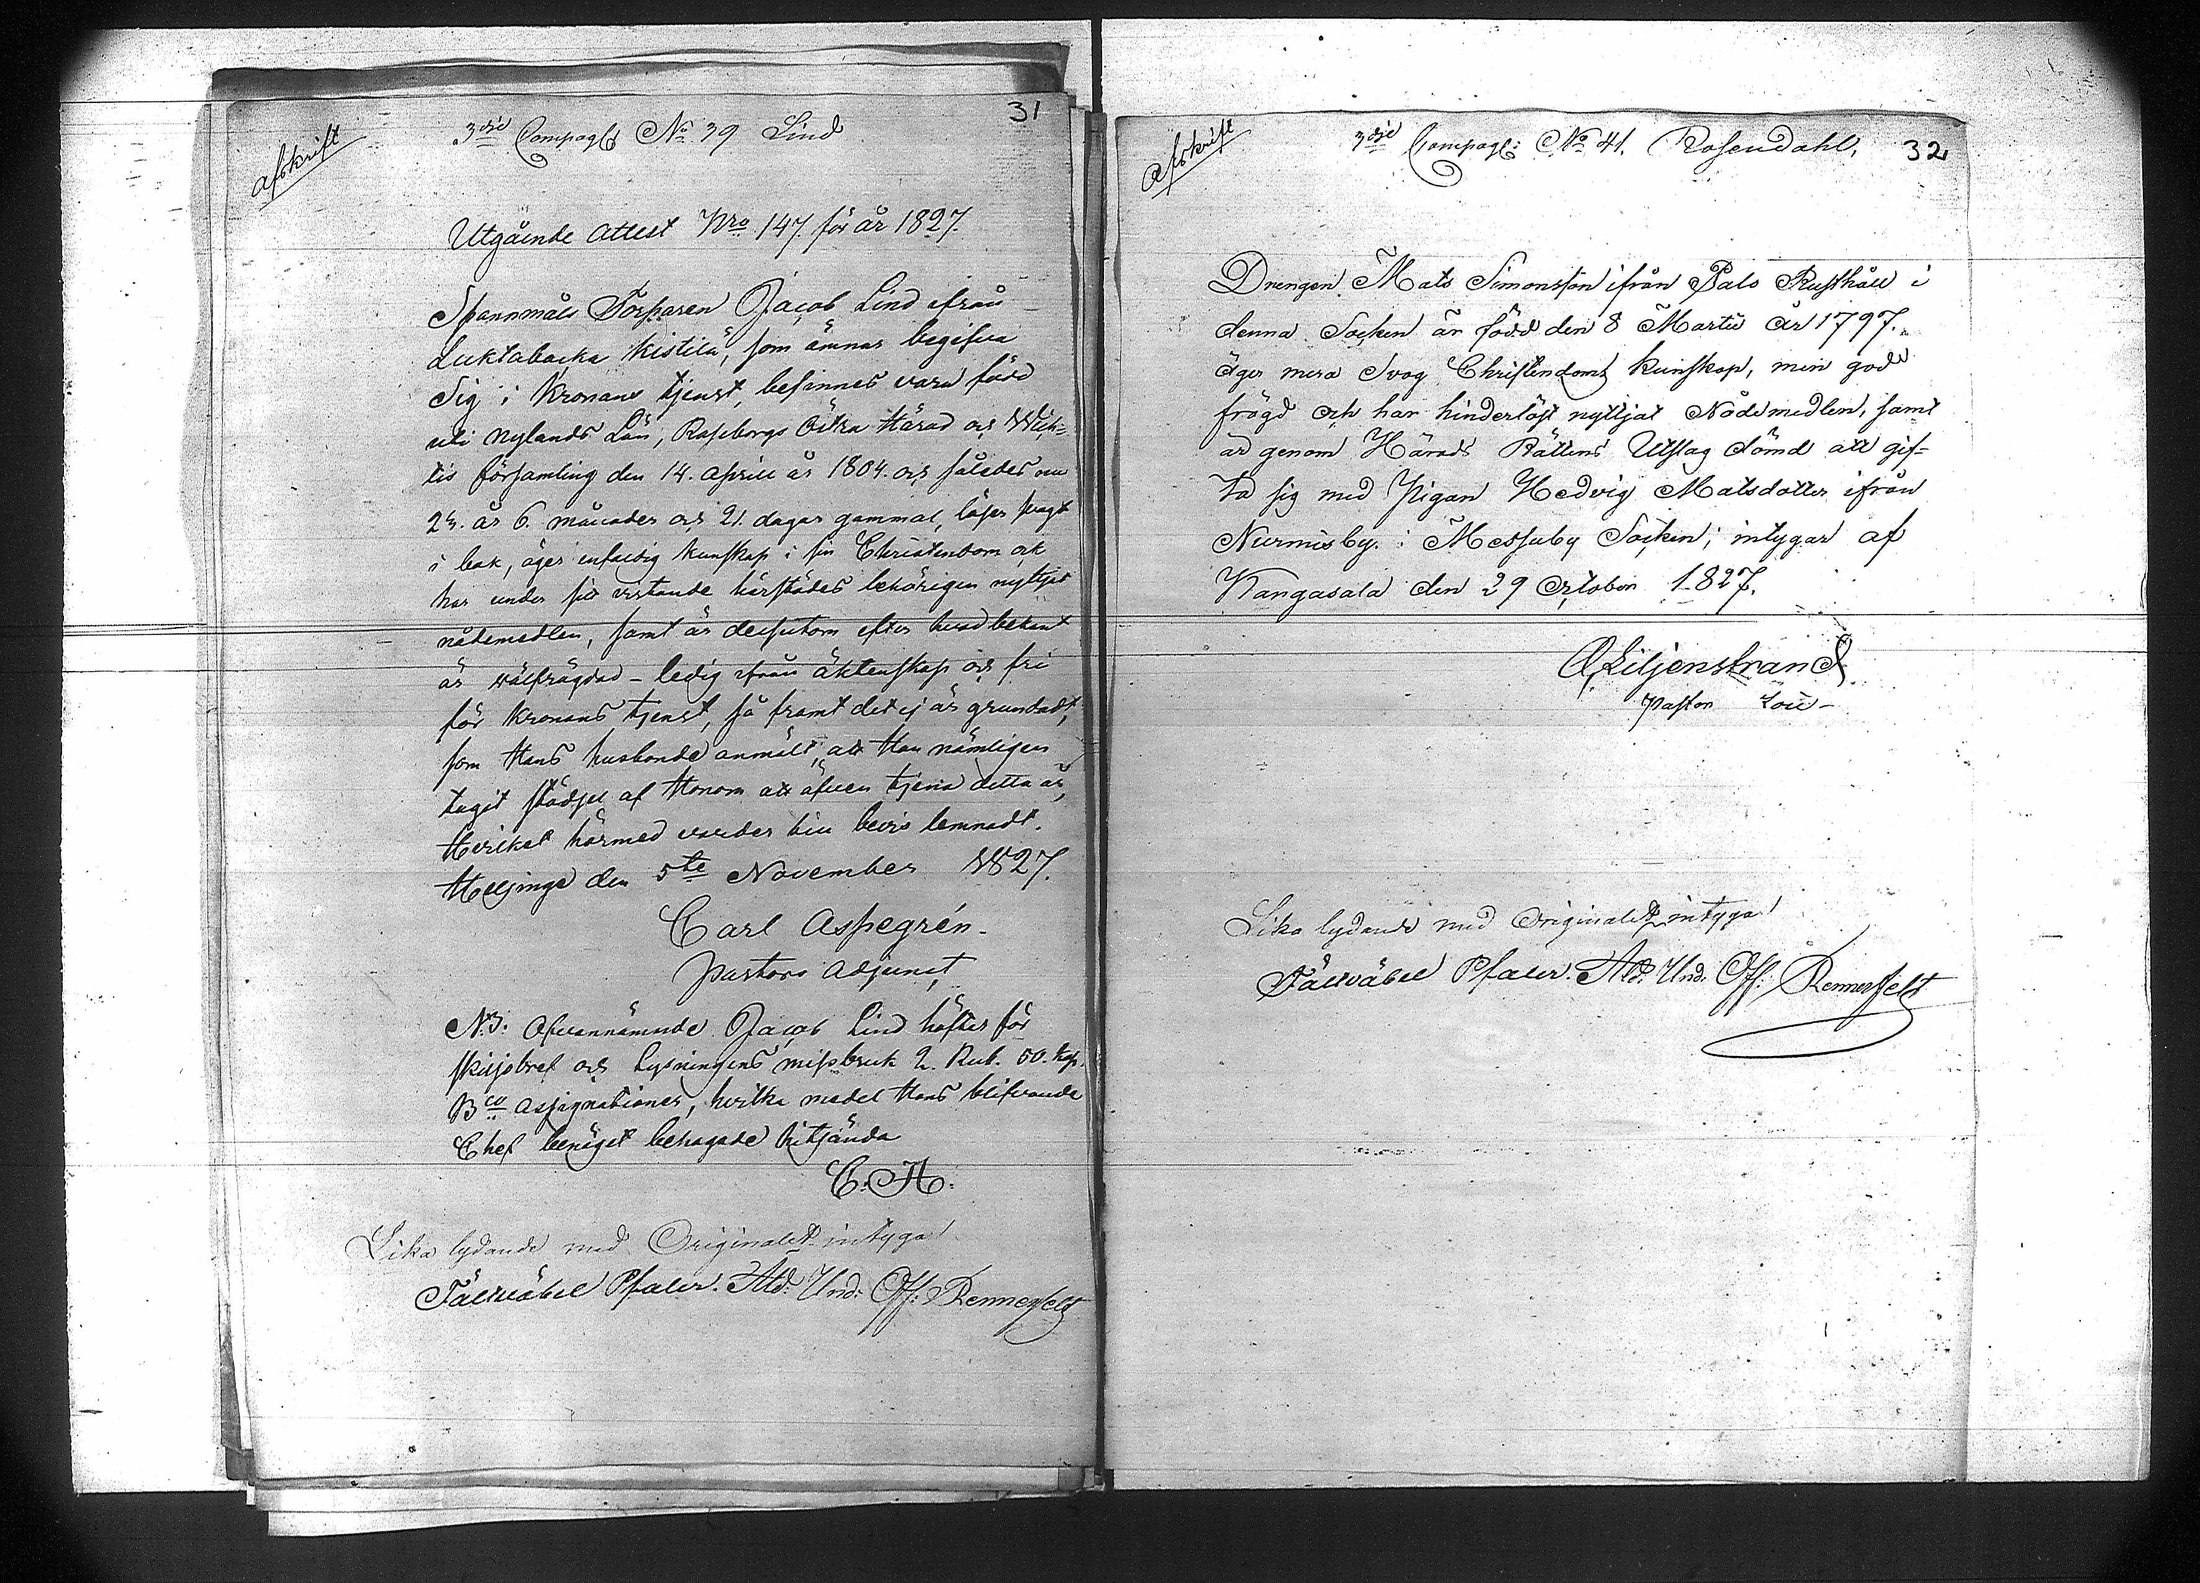 31
Afskrift
3die Compagt No 39 Lind
Utgående Attest Nro 147 för år 1827.
Spannmåls Torparen Jacob Lind ifrån
Luktabacka Kistilä, som ämnar begifva
Sig i Kronans tjenst, befinnes vara född
uti Nylands Län, Raseborgs Östra Härad och Wich=
tis församling den 14. April år 1804. och således nu
23. år 6. månader och 21. dagar gammal, läser svagt
i bok, äger enfaldig kunskap i sin Christendom och
har under sin vistande härstädes behörigen nyttjat
nådemedlen, samt är dessutom efter hvad bekant
är välfrägdad – ledig ifrån äktenskap och fri
för Kronans tjenst, så framt det ej är grundadt,
som Hans husbonde anmält, att Han nämligen
tagit städjel af Honom att äfven tjena detta år,
Hvilket härmed varder till bevis lemnadt.
Heljinge den 5te November 1827.
Carl Aspegrén.
Pastors Adjunct,
N.B. Ofvannämnde Jacob Lind häftar för
skiljobref och Lysningens missbruk 2. Rub. 50. kop.
Bco Assignationer, hvilka medel Hans blifvande
Chef benäget behagade hitsända
C. A.
Lika lydande med Originalet intyga!
Fältväbel Pfaler. Ald. Und: Off: Rennerfelt
32
Afskrift
3die Compagt: No 41. Rosendahl.
Drengen Mats Simonsson ifrån Palo Rusthåll i
denna Socken är född den 8 Martii år 1797.
äger mera svag Christendoms kunskap, men god
frägd och har hinderlöst nyttjat Nådemedlen, samt
är genom Härads Rättens Utslag dömd att gif=
ta sig med Pigan Hedvig Matsdotter ifrån
Nurmisby i Messuby Socken; intygar af
Kangasala den 29 October 1827.
A, Liljenstrand.
Pastor Loci –
Lika lydande med Originalet intyga!
Fältväbel Pfaler. Ald. Und: Off: Rennerfelt